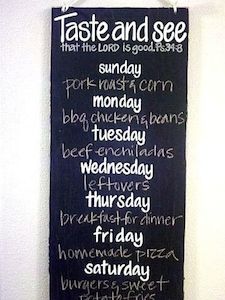 Taste and see
that the LORD is good. Ps. 34:8
sunday
pork roast & corn
monday
bbq chicken & beans
tuesday
beef enchiladas
wednesday
leftovers
thursday
breakfast for dinner
friday
homemade pizza
saturday
burgers & sweet
potato fries